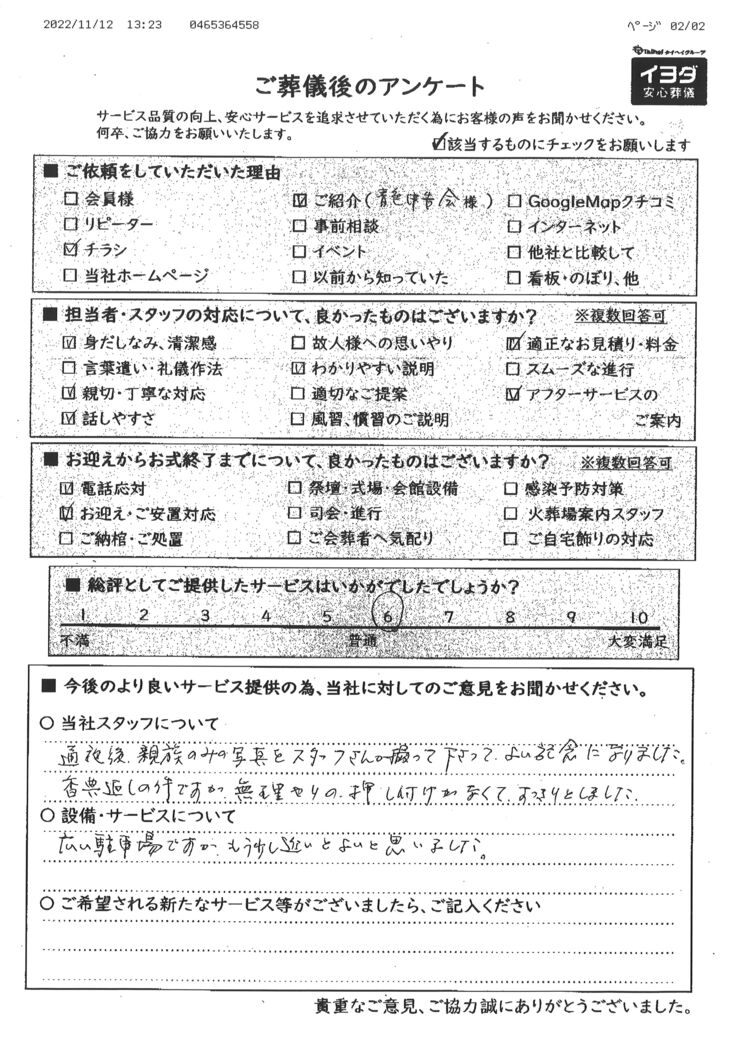 2022/11/12 13:23 0465364558 ﾍﾟｰｼﾞ 02/02
Taihei タイヘイグループ
イヨダ
安心葬儀
ご葬儀後のアンケート
サービス品質の向上、安心サービスを追求させていただく為にお客様の声をお聞かせください。
何卒、ご協力をお願いいたします。
☑該当するものにチェックをお願いします
■ ご依頼をしていただいた理由
□ 会員様 ☑ ご紹介(青色申告会様) □ GoogleMapクチコミ
□ リピーター □ 事前相談 □ インターネット
☑ チラシ □ イベント □ 他社と比較して
□ 当社ホームページ □ 以前から知っていた □ 看板・のぼり、他
■ 担当者・スタッフの対応について、良かったものはございますか? ※複数回答可
☑ 身だしなみ、清潔感 □ 故人様への思いやり ☑ 適正なお見積り・料金
□ 言葉遣い・礼儀作法 ☑ わかりやすい説明 □ スムーズな進行
☑ 親切・丁寧な対応 □ 適切なご提案 ☑ アフターサービスの
☑ 話しやすさ □ 風習、慣習のご説明 ご案内
■ お迎えからお式終了までについて、良かったものはございますか? ※複数回答可
☑ 電話応対 □ 祭壇・式場・会館設備 □ 感染予防対策
☑ お迎え・ご安置対応 □ 司会・進行 □ 火葬場案内スタッフ
□ ご納棺・ご処置 □ ご会葬者へ気配り □ ご自宅飾りの対応
■ 総評としてご提供したサービスはいかがでしたでしょうか?
1 2 3 4 5 6 7 8 9 10
不満 普通 大変満足
■ 今後のより良いサービス提供の為、当社に対してのご意見をお聞かせください。
○ 当社スタッフについて
通夜後、親族のみの写真をスタッフさんが撮って下さって、よい記念になりました。
香典返しの件ですが、無理やりの、押し付けがなくて、すっきりとしました。
○ 設備・サービスについて
広い駐車場ですが、もう少し近いとよいと思いました。
○ ご希望される新たなサービス等がございましたら、ご記入ください
貴重なご意見、ご協力誠にありがとうございました。